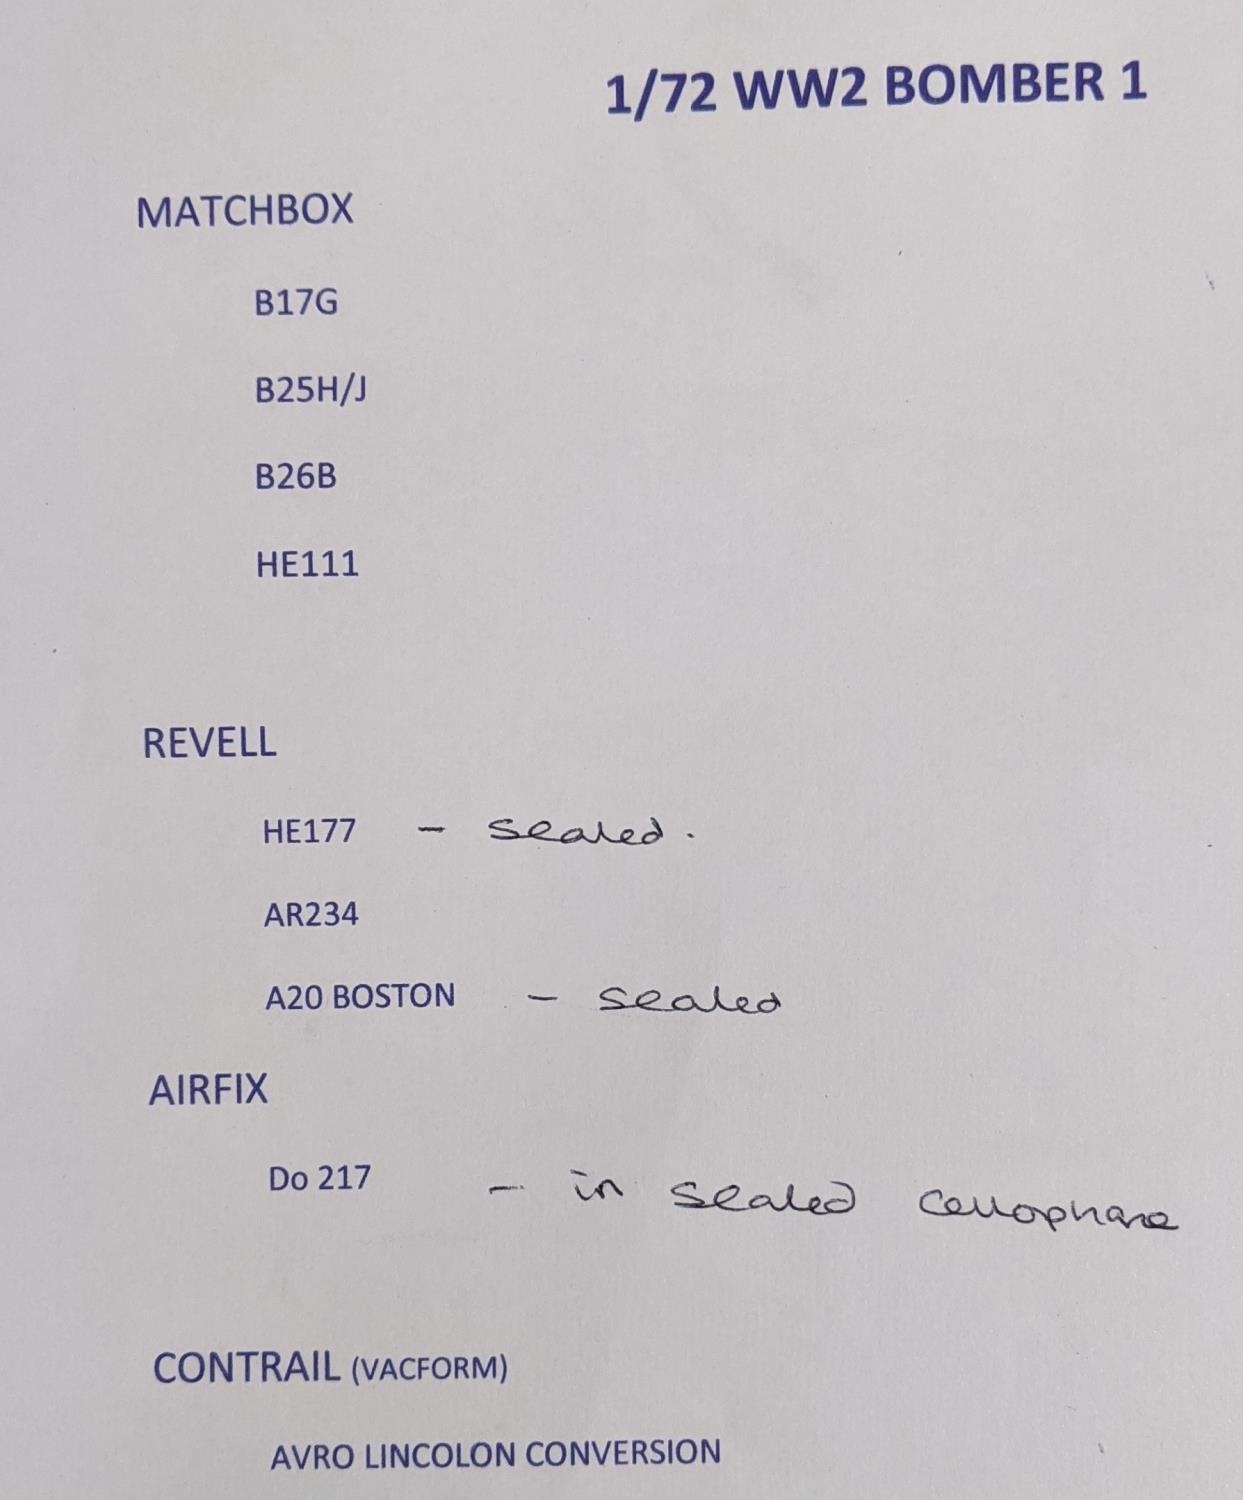 1/72 WW2 BOMBER 1
MATCHBOX
B17G
B25H/J
B26B
HE111
REVELL
HE177 - sealed.
AR234
A20 BOSTON - sealed
AIRFIX
Do 217 - in sealed cellophane
CONTRAIL (VACFORM)
AVRO LINCOLON CONVERSION